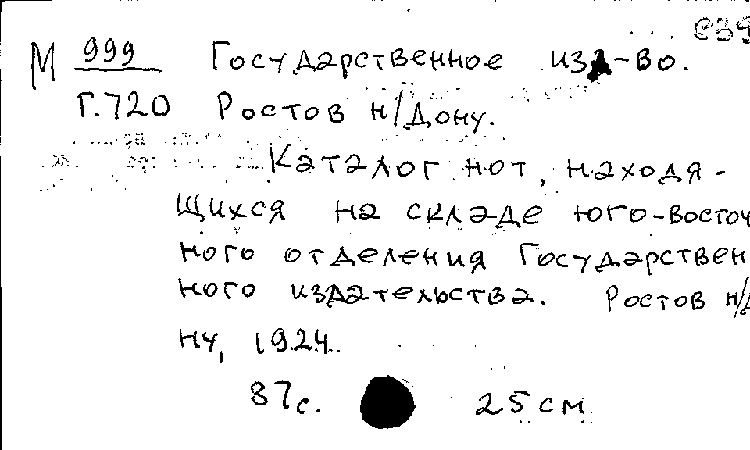 М 999 Государственное изд-во.
Г.720 Ростов н/Дону.
Каталог нот, находя-
щихся на складе юго-восточ
ного отделения Государствен
ного издательства. Ростов н/Д
ну, 1924.
87с. 25 см